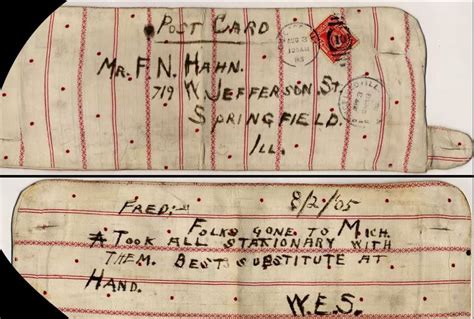 POST CARD
MR. F. N. HAHN.
719 W JEFFERSON ST.
SPRINGFIELD.
ILL.
FRED: 8/2/05
FOLKS GONE TO MICH.
& TOOK ALL STATIONARY WITH
THEM. BEST SUBSTITUTE AT
HAND.
W.E.S.